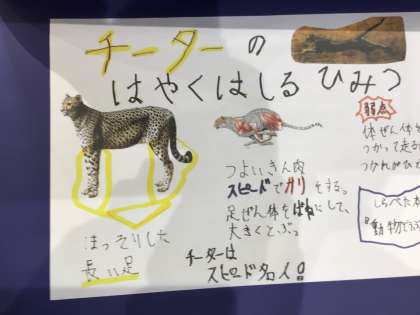 チーターの
はやくはしる ひみつ
つよいきん肉
スピードでカリをする。
足ぜん体をばねにして、
大きくとぶっ
ほっそりした
長い足
チーターは
スピード名人!!
弱点
体ぜん体を
つかって走る
つかれがひ
しらべた本